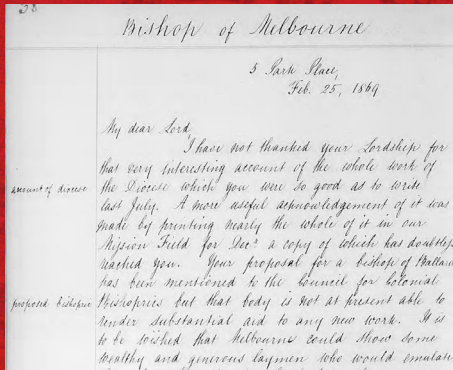 38
Bishop of Melbourne
5 Park Place,
Feb. 25, 1869
My dear Lord,
I have not thanked your Lordship for
that very interesting account of the whole work of
account of diocese
the Diocese which you were so good as to write
last July. A more useful acknowledgement of it was
made by printing nearly the whole of it in our
Mission Field for Decr a copy of which has doubtless
reached you. Your proposal for a bishop of Ballar
has been mentioned to the Council for Colonial
proposed bishopric
Bishoprics but that body is not at present able to
render substantial aid to any new work. It is
to be wished that Melbourne could show some
wealthy and generous laymen who would emulate